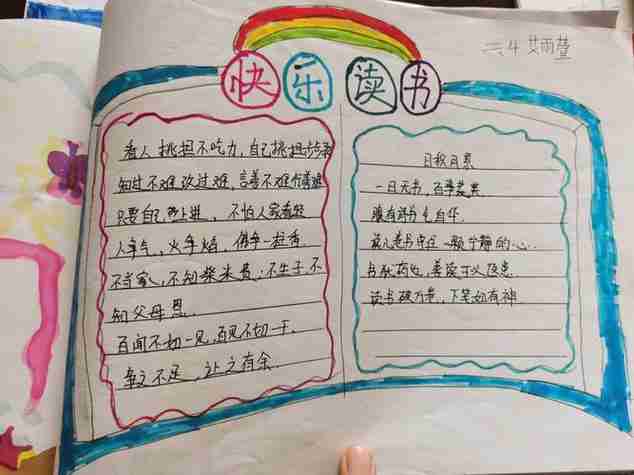 快乐读书
三4 艾雨萱
看人挑担不吃力,自己挑担步步
知过不难改过难,言善不难行善难
只要自己上进,不怕人家看轻
人争气,火争焰,佛争一炷香.
不当家,不知柴米贵;不生子,不
知父母恩.
百闻不如一见,百见不如一干.
争之不足,让之有余.
一日无书,百事荒芜.
腹有诗书气自华.
书犹药也,善读可以医愚.
读书破万卷,下笔如有神.